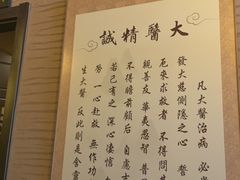 大醫精誠
凡大醫治病 必
發大慈惻隱之心 誓
厄來求救者 不得問其
親善友 華夷愚智 普
不得瞻前顧后 自慮吉
若己有之 深心悽愴
勞 一心赴救 無作功
生大醫 反此則是含靈